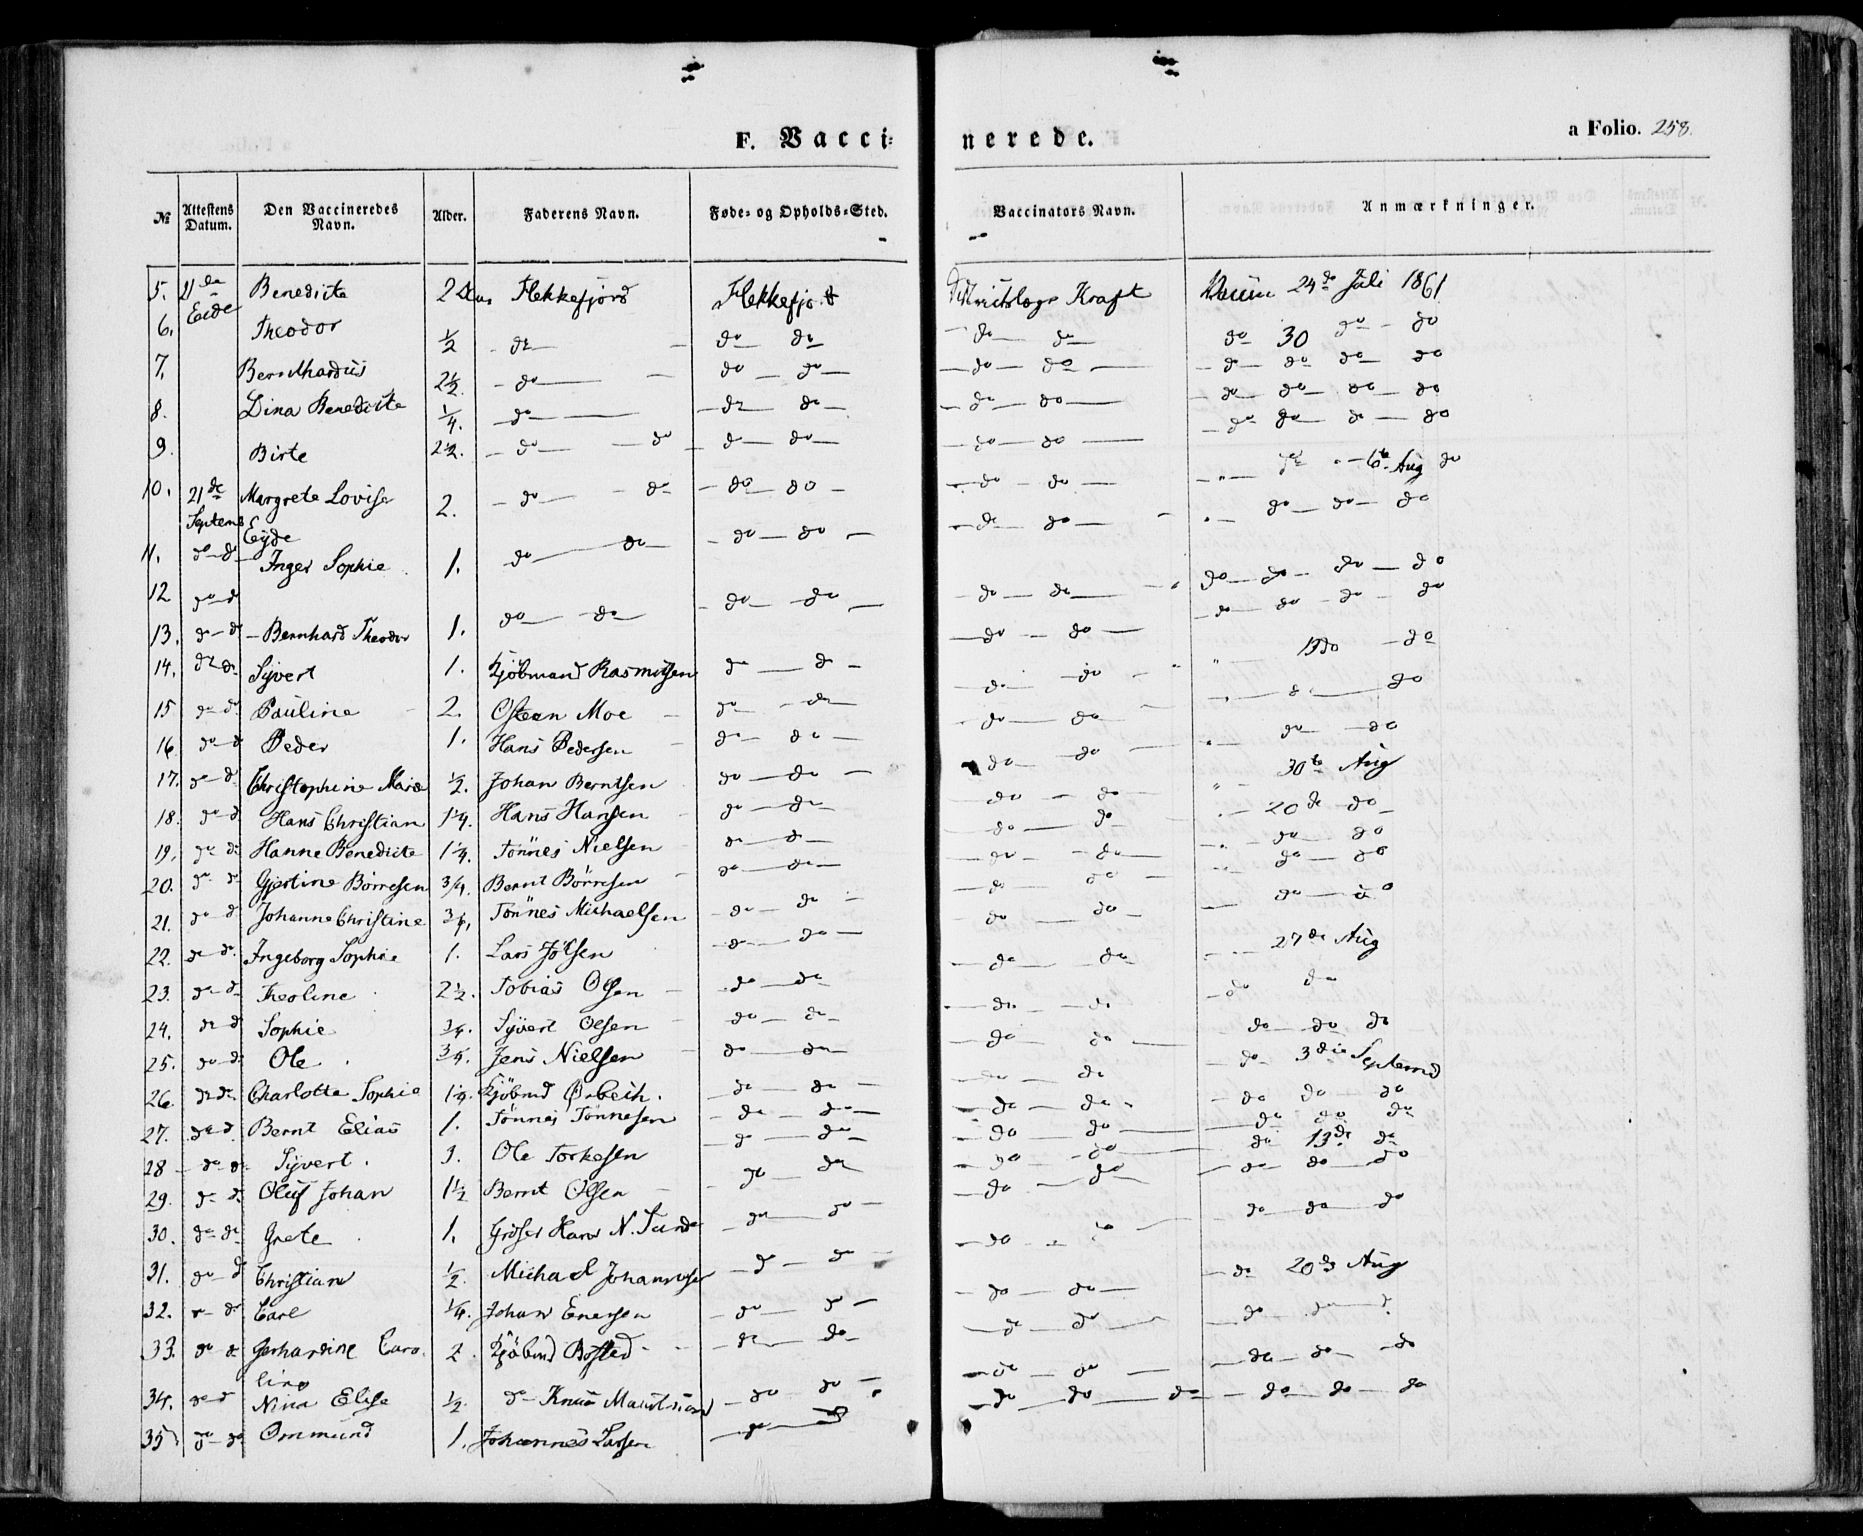 F. Vacci- nerede.
a Folio. 258.
№ Attestens Datum. Den Vaccineredes Navn. Alder. Faderens Navn. Føde- og Opholds-Sted. Vaccinators Navn. Anmærkninger.
5. Benedicte 2 Flekkefjord Kraft 24de Juli 1861
6. Eide Theodor 1/2 do do do do do do 30 do do
7. Bernthardus 2 1/2 do do do do do do do do do
8. Dina Benedicte 1/4. do do do do do do do do do
9. Birte 2 1/2. do do do do do do do do do do
10. 21de Margrete Lovise 2. do do do do do do 6te Aug do
Septemb Eyde
11. do do Inger Sophie 1. do do do do do do do do do
12 do d do do do do do do do do
13. do d Bernhard Theodor 1. do do do do do do do do do do
14. do do Syvert 1. Kjöbmand Rasmussen do do do do do
15 do d Pauline 2. Osteen Moe do do do do do
16 do d Peder 1. Hans Pedersen do do do do do do
17. do d Christophine Marie 1/2. Johan Berntsen do do do do 30te Aug
18. do d Hans Christian 1 1/4. Hans Hansen do do do do 20de do
19. do d Hanne Benedicte 1 1/4. Tönnes Nielsen do do do do do do
20. do d Gjertine Börresen 3/4. Bernt Börresen do do do do do do
21. do d Johanne Christine 3/4, Tönnes Michaelsen do do do do do do
22. do d Ingeborg Sophie 1. Lars do do do do 27de Aug
23. do d Theoline 2 1/2. Tobias Olsen do do do do do do
24. do d Sophie 3/4. Syvert Olsen do do do do do do do
25. do d Ole 3/4. Jens Nielsen do do do do do 3die Septemb
26. do do Charlotte Sophie 1 1/4. Kjöbmd Ørbech. do do do do do do do
27. do d Bernt Elias 1. Tönnes Tönnesen do do do do do do do
28 do do Syvert. 3. Ole Torkesen do do do do do 13de do
29. do d Oluf Johan 1 1/2 Bernt Olsen do do do do do do do
30. do do Grete 1. Hans N. do do do do do do do
31. do d Christian 1/2. Michael Johannesen do do do do do 20de Aug
32. do Carl 1/4. Johan Enersen do do do do do
33. do d Gerhardine Caro- 2. Kjöbmd do do do do do do do
line
34. do d Nina Elise 1/2. do Knud do do do do do do do do
35 do do Ommund 1. Johannes Larsen do